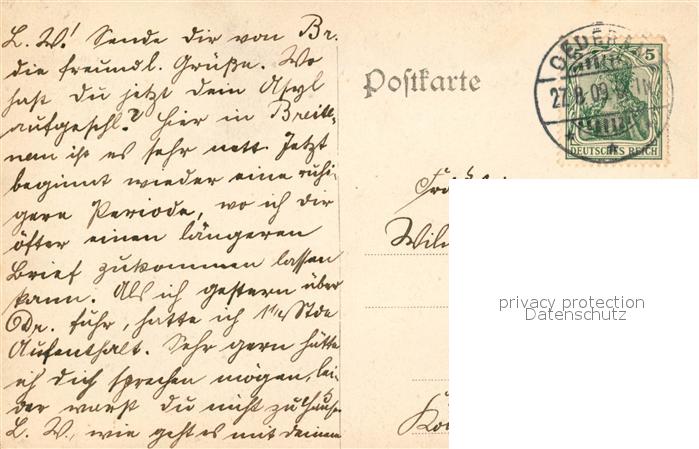 L. W.! Sende dir von Br.
die freundl. Grüße. Wo
hast du jetzt dein Asyl
aufgeschl.? Hier in Breit-
nan ist es sehr nett. Jetzt
beginnt wieder eine ruhi-
gere Periode, wo ich dir
öfter einen längeren
Brief zukommen lassen
kann. Als ich gestern über
Dr. fuhr, hatte ich 1 1/4 Stde
Aufenthalt. Sehr gern hätte
ich dich sprechen mögen, lei-
der warst du nicht zu Hause
L. W., wie geht es mit deinem
Postkarte
GEDERN
27.8.09.
5
DEUTSCHES REICH
privacy protection
Datenschutz